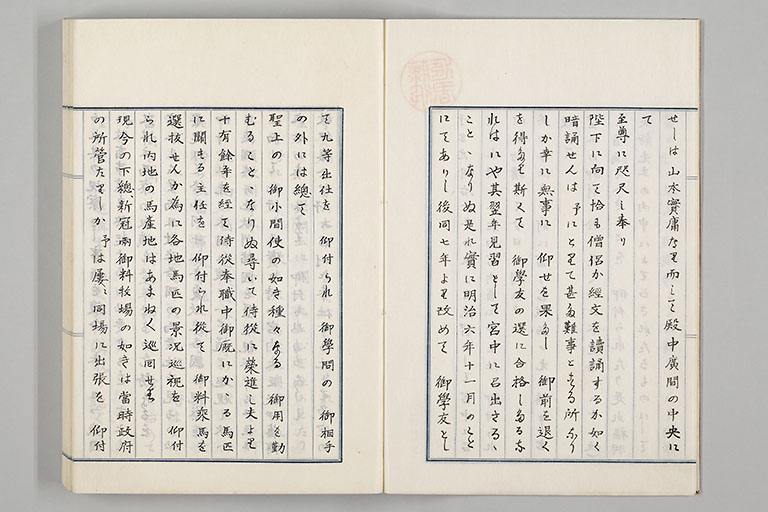 せしは山本實庸なり而して殿中廣間の中央に
て
至尊に咫尺し奉り
陛下に向て恰も僧侶か經文を讀誦するか如く
暗誦せんは予にとりて甚た難事とする所なり
しか幸に無事に仰せを果たし御前を退く
を得たり斯くて御學友の選に合格したるな
れはにや其翌年見習として宮中に召出さるゝ
ことゝなりぬ是れ實に明治六年十一月のこと
にてありし後同七年より改めて御學友とし
て九等出仕を仰付られ御學問の御相手
の外には總て
聖上の御小間使の如き種々なる御用を勤
むることゝなりぬ尋いて侍從に榮進し夫より
十有餘年を經て侍從奉職中御厩にかゝる馬匹
に關する主任を仰付られ從て御料乘馬を
選抜せんか為に各地馬匹の景況巡視を仰付
られ内地の馬産地はあまねく巡回せり
現今の下總新冠兩御料牧場の如きは當時政府
の所管たりしか予は屢々同場に出張を仰付